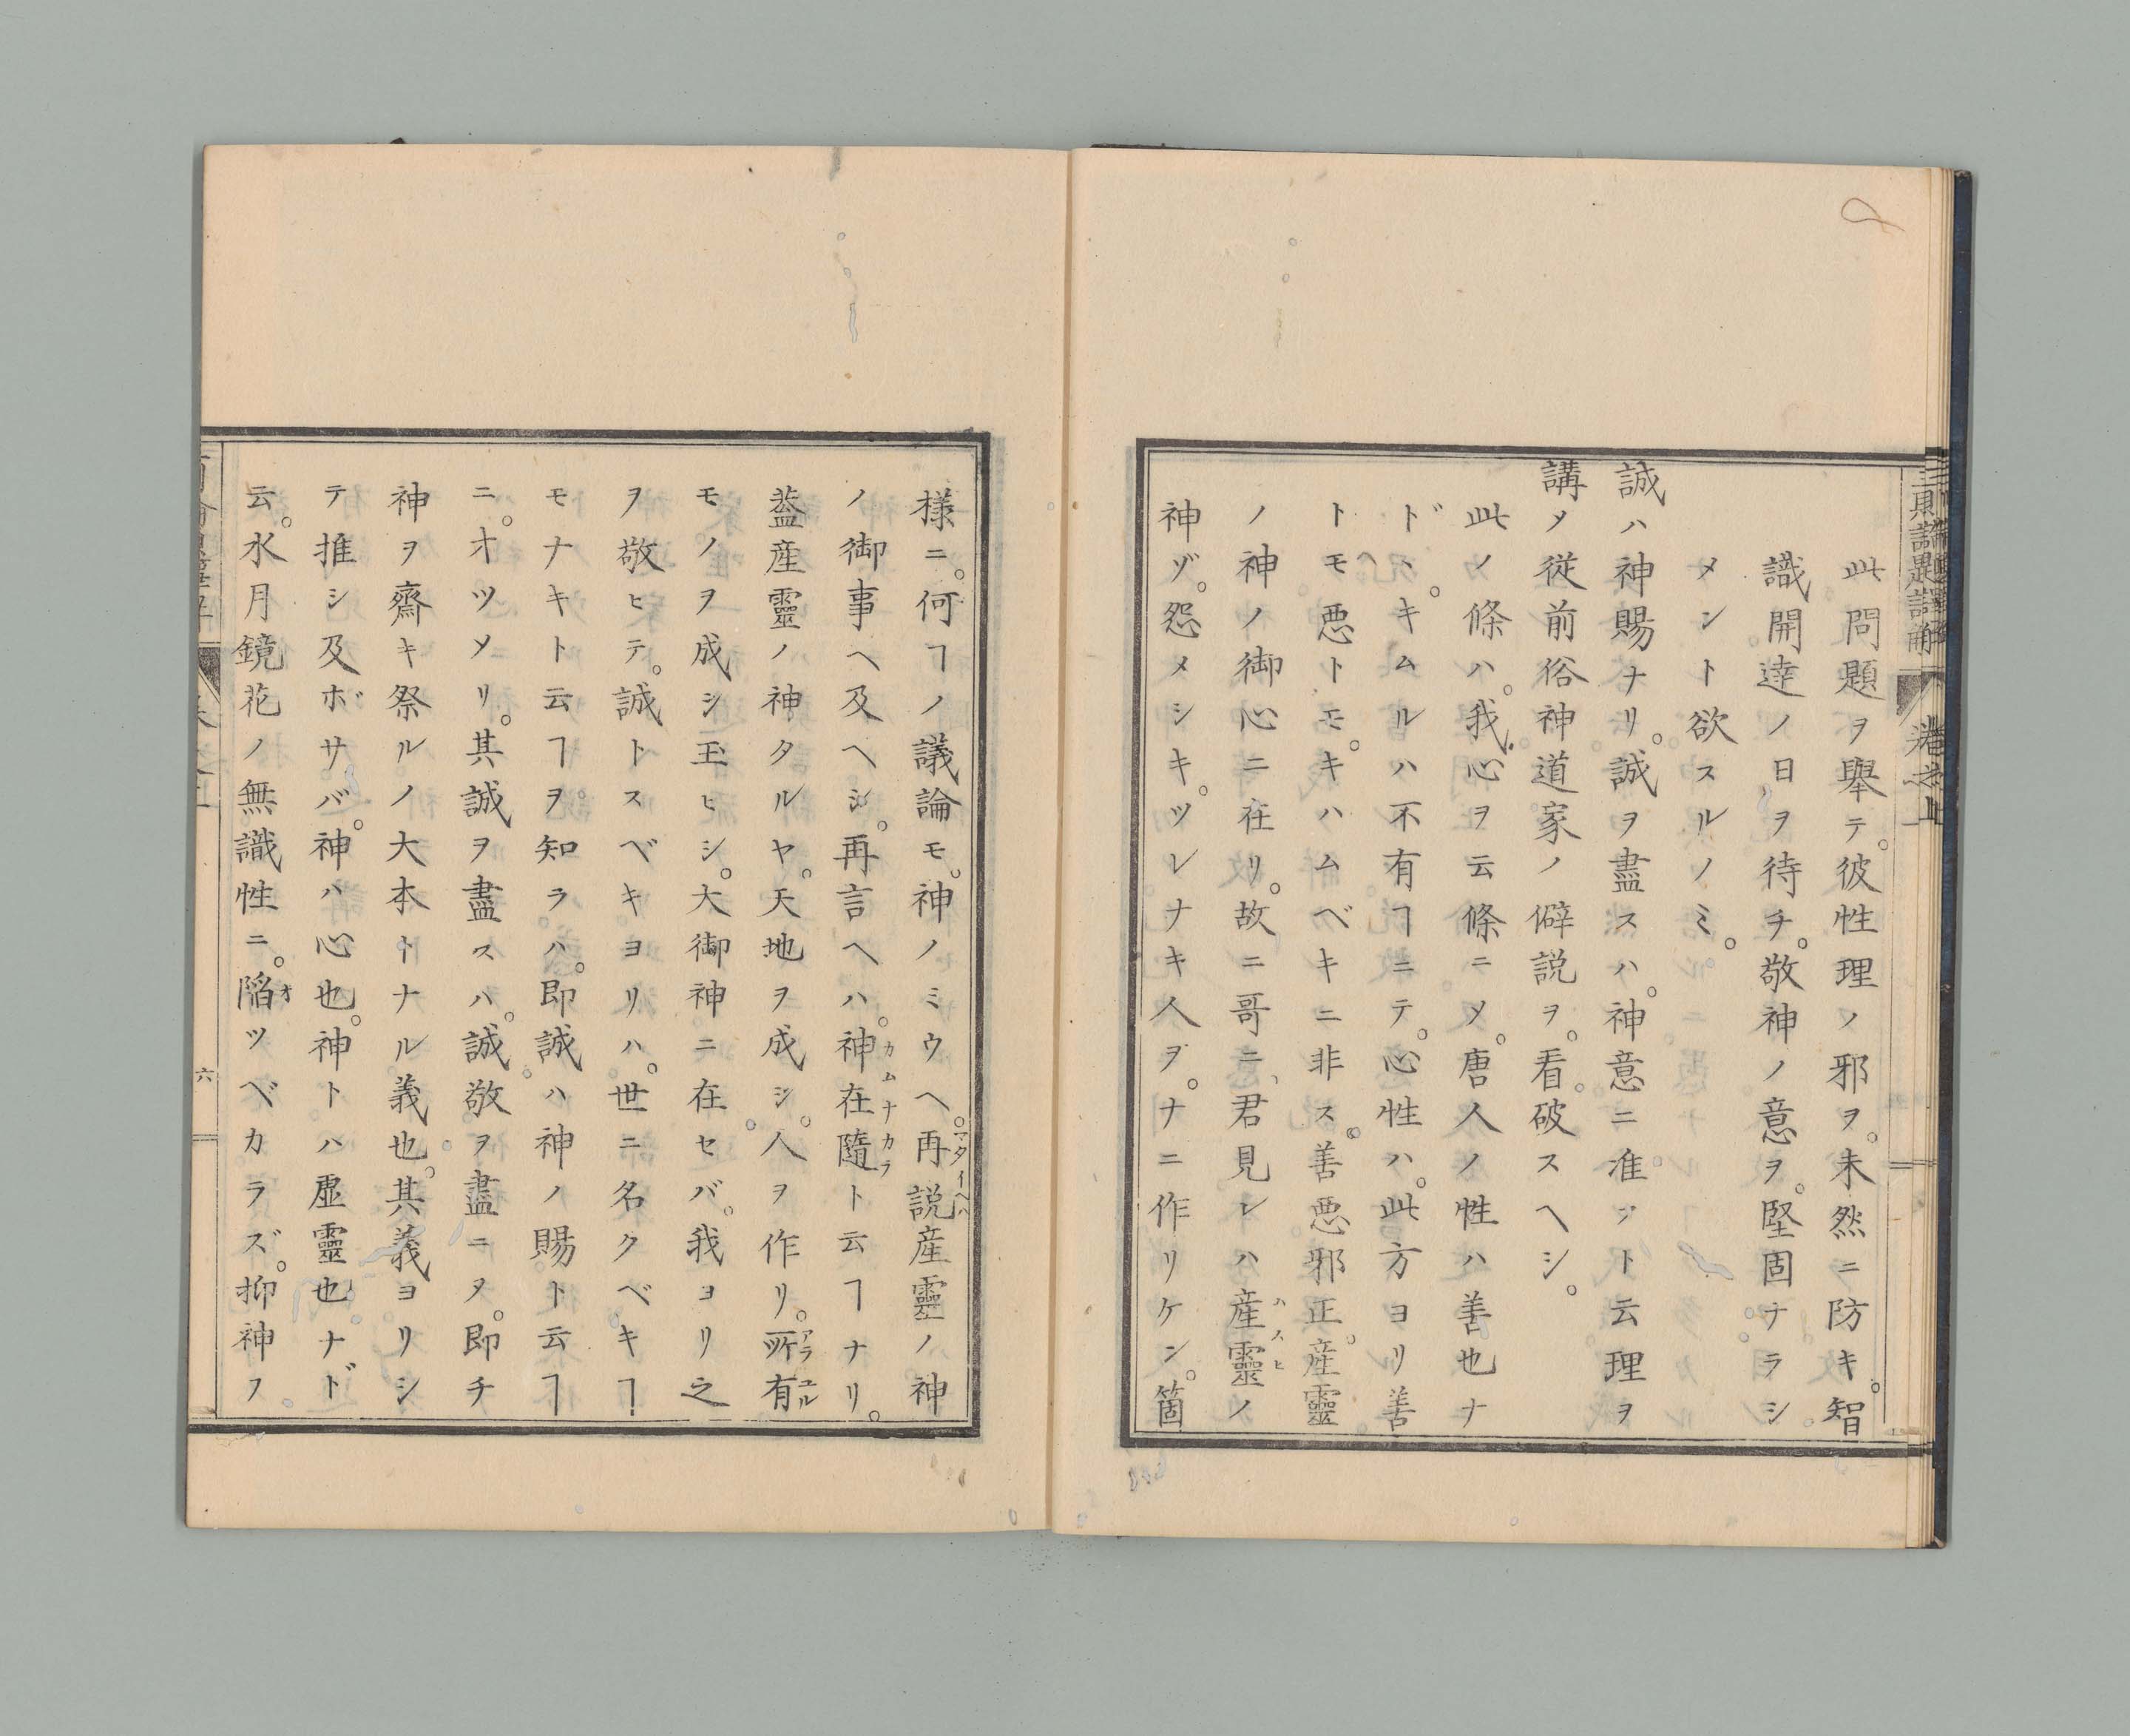 此問題ヲ舉テ。彼性理ノ邪ヲ。未然ニ防キ。智
識開達ノ日ヲ待チ。敬神ノ意ヲ。堅固ナラシ
メント欲スルノミ。
誠ハ神賜ナリ。誠ヲ盡スハ。神意ニ准フト云理ヲ
講メ従前俗神道家ノ僻説ヲ。看破スヘシ。
此ノ條ハ。我心ヲ云條ニメ。唐人ノ性ハ善也ナ
ドヽ。キムルハ不有ヿニテ。心性ハ。此方ヨリ善
トモ悪トモ。キハムベキニ非ス。善悪邪正。産靈
ノ神ノ御心ニ在リ。故ニ哥ニ、君見レハ産靈ノ
神ゾ。怨メシキ。ツレナキ人ヲ。ナニ作リケン。箇
様ニ。何ヿノ議論モ。神ノミウヘ。再説産靈ノ神
ノ御事ヘ及ヘシ。再言ヘハ。神在隨ト云ヿナリ。
葢産靈ノ神タルヤ。天地ヲ成シ。人ヲ作リ。所有
モノヲ成シ玉ヒシ。大御神ニ在セバ。我ヨリ之
ヲ敬ヒテ。誠トスベキヨリハ。世ニ名クベキヿ
モナキト云ヿヲ知ラハ。即誠ハ神ノ賜ト云ヿ
ニ。オツメリ。其誠ヲ盡スハ。誠敬ヲ盡ニヲ。即チ
神ヲ齋キ祭ルノ大本トナル義也。其義ヨリシ
テ推シ及ボサバ。神ハ心也。神トハ虚靈也ナド
云。水月鏡花ノ無識性ニ。陥ツベカラズ。抑神フ
六